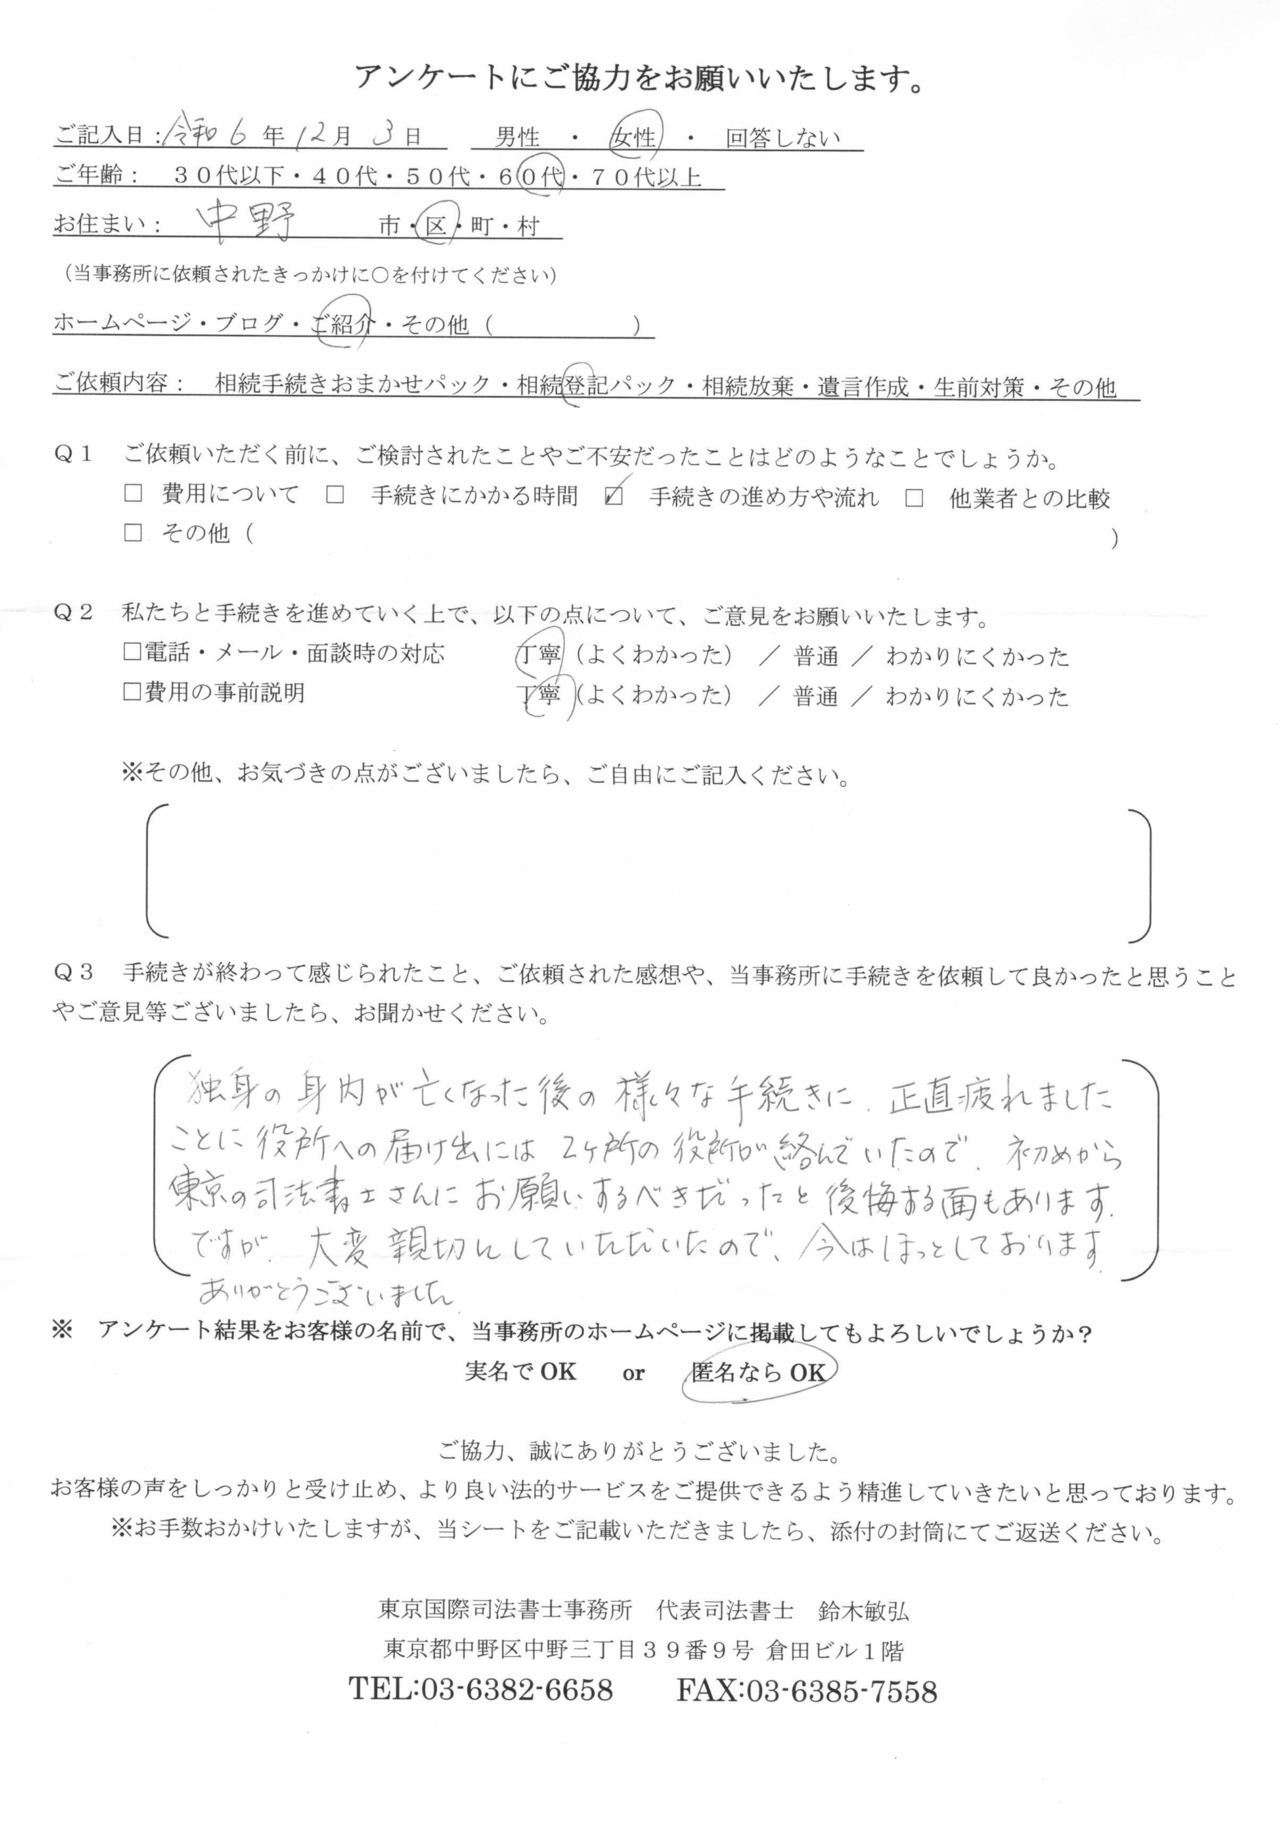 アンケートにご協力をお願いいたします。
ご記入日：令和6年12月3日　男性　・　女性　・　回答しない
ご年齢：　３０代以下・４０代・５０代・６０代・７０代以上
お住まい：　中野　市・区・町・村
（当事務所に依頼されたきっかけに○を付けてください）
ホームページ・ブログ・ご紹介・その他（　　　　　　）
ご依頼内容：　相続手続きおまかせパック・相続登記パック・相続放棄・遺言作成・生前対策・その他
Ｑ１　ご依頼いただく前に、ご検討されたことやご不安だったことはどのようなことでしょうか。
□ 費用について　□　手続きにかかる時間　☑　手続きの進め方や流れ　□　他業者との比較
□ その他（　　　　　　　　　　）
Ｑ２　私たちと手続きを進めていく上で、以下の点について、ご意見をお願いいたします。
□電話・メール・面談時の対応　　丁寧（よくわかった）　／　普通　／　わかりにくかった
□費用の事前説明　　丁寧（よくわかった）　／　普通　／　わかりにくかった
※その他、お気づきの点がございましたら、ご自由にご記入ください。
Ｑ３　手続きが終わって感じられたこと、ご依頼された感想や、当事務所に手続きを依頼して良かったと思うこと
やご意見等ございましたら、お聞かせください。
独身の身内が亡くなった後の様々な手続きに、正直疲れました
ことに役所への届け出には2ヶ所の役所が絡んでいたので、初めから
東京の司法書士さんにお願いするべきだったと後悔する面もあります.
ですが、大変親切にしていただいたので、今はほっとしております.
ありがとうございました
※　アンケート結果をお客様の名前で、当事務所のホームページに掲載してもよろしいでしょうか？
実名でOK　　or　　匿名ならOK
ご協力、誠にありがとうございました。
お客様の声をしっかりと受け止め、より良い法的サービスをご提供できるよう精進していきたいと思っております。
※お手数おかけいたしますが、当シートをご記載いただきましたら、添付の封筒にてご返送ください。
東京国際司法書士事務所　代表司法書士　鈴木敏弘
東京都中野区中野三丁目３９番９号 倉田ビル１階
TEL:03-6382-6658　　FAX:03-6385-7558